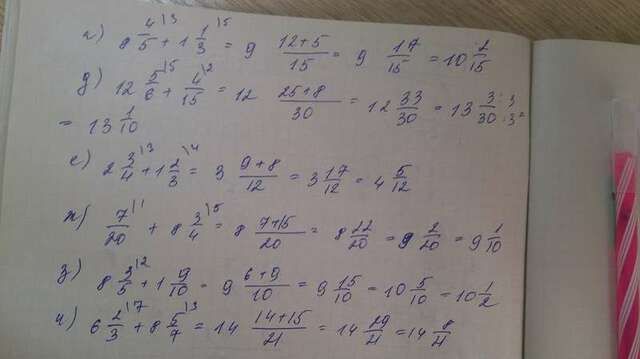 г) 8 4/5\3 + 1 1/3\5 = 9 (12+5)/15 = 9 17/15 = 10 2/15
д) 12 5/6\5 + 4/15\2 = 12 (25+8)/30 = 12 33/30 = 13 3:3/30:3 =
= 13 1/10
е) 2 3/4\3 + 1 2/3\4 = 3 (9+8)/12 = 3 17/12 = 4 5/12
ж) 7/20\1 + 8 3/4\5 = 8 (7+15)/20 = 8 22/20 = 9 2/20 = 9 1/10
з) 8 3/5\2 + 1 9/10 = 9 (6+9)/10 = 9 15/10 = 10 5/10 = 10 1/2
и) 6 2/3\7 + 8 5/7\3 = 14 (14+15)/21 = 14 29/21 = 14 8/21